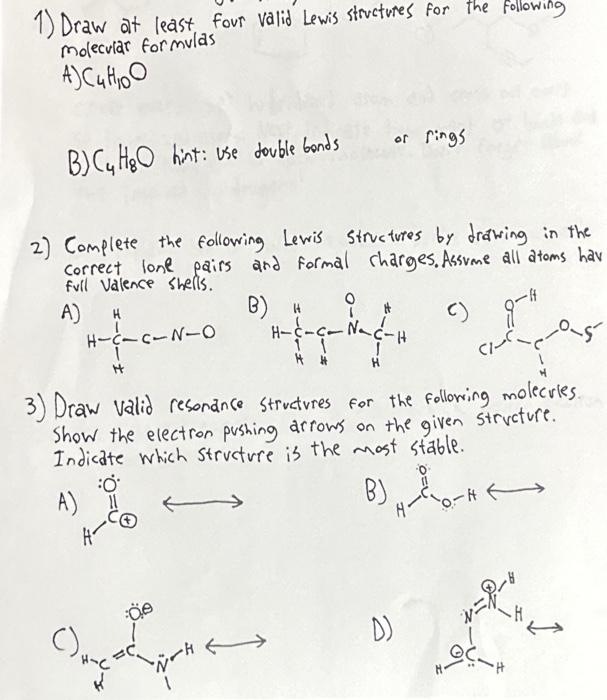 1) Draw at least four valid Lewis structures for the following
molecular formulas
A) C₄H₁₀O
B) C₄H₈O hint: use double bonds or rings
2) Complete the following Lewis structures by drawing in the
correct lone pairs and formal charges. Assume all atoms hav
full valence shells.
A) B) C)
H H O H O-H
H-C-C-N-O H-C-C-N-C-H Cl-C-C-O-S
H H H H H
3) Draw valid resonance structures for the following molecules.
Show the electron pushing arrows on the given structure.
Indicate which structure is the most stable.
A) :O: B) O
H C ⊕ H C O-H
C) :O:⊖ D) N=N ⊕ H H
H-C=C-N-H ⊖C:
H H H